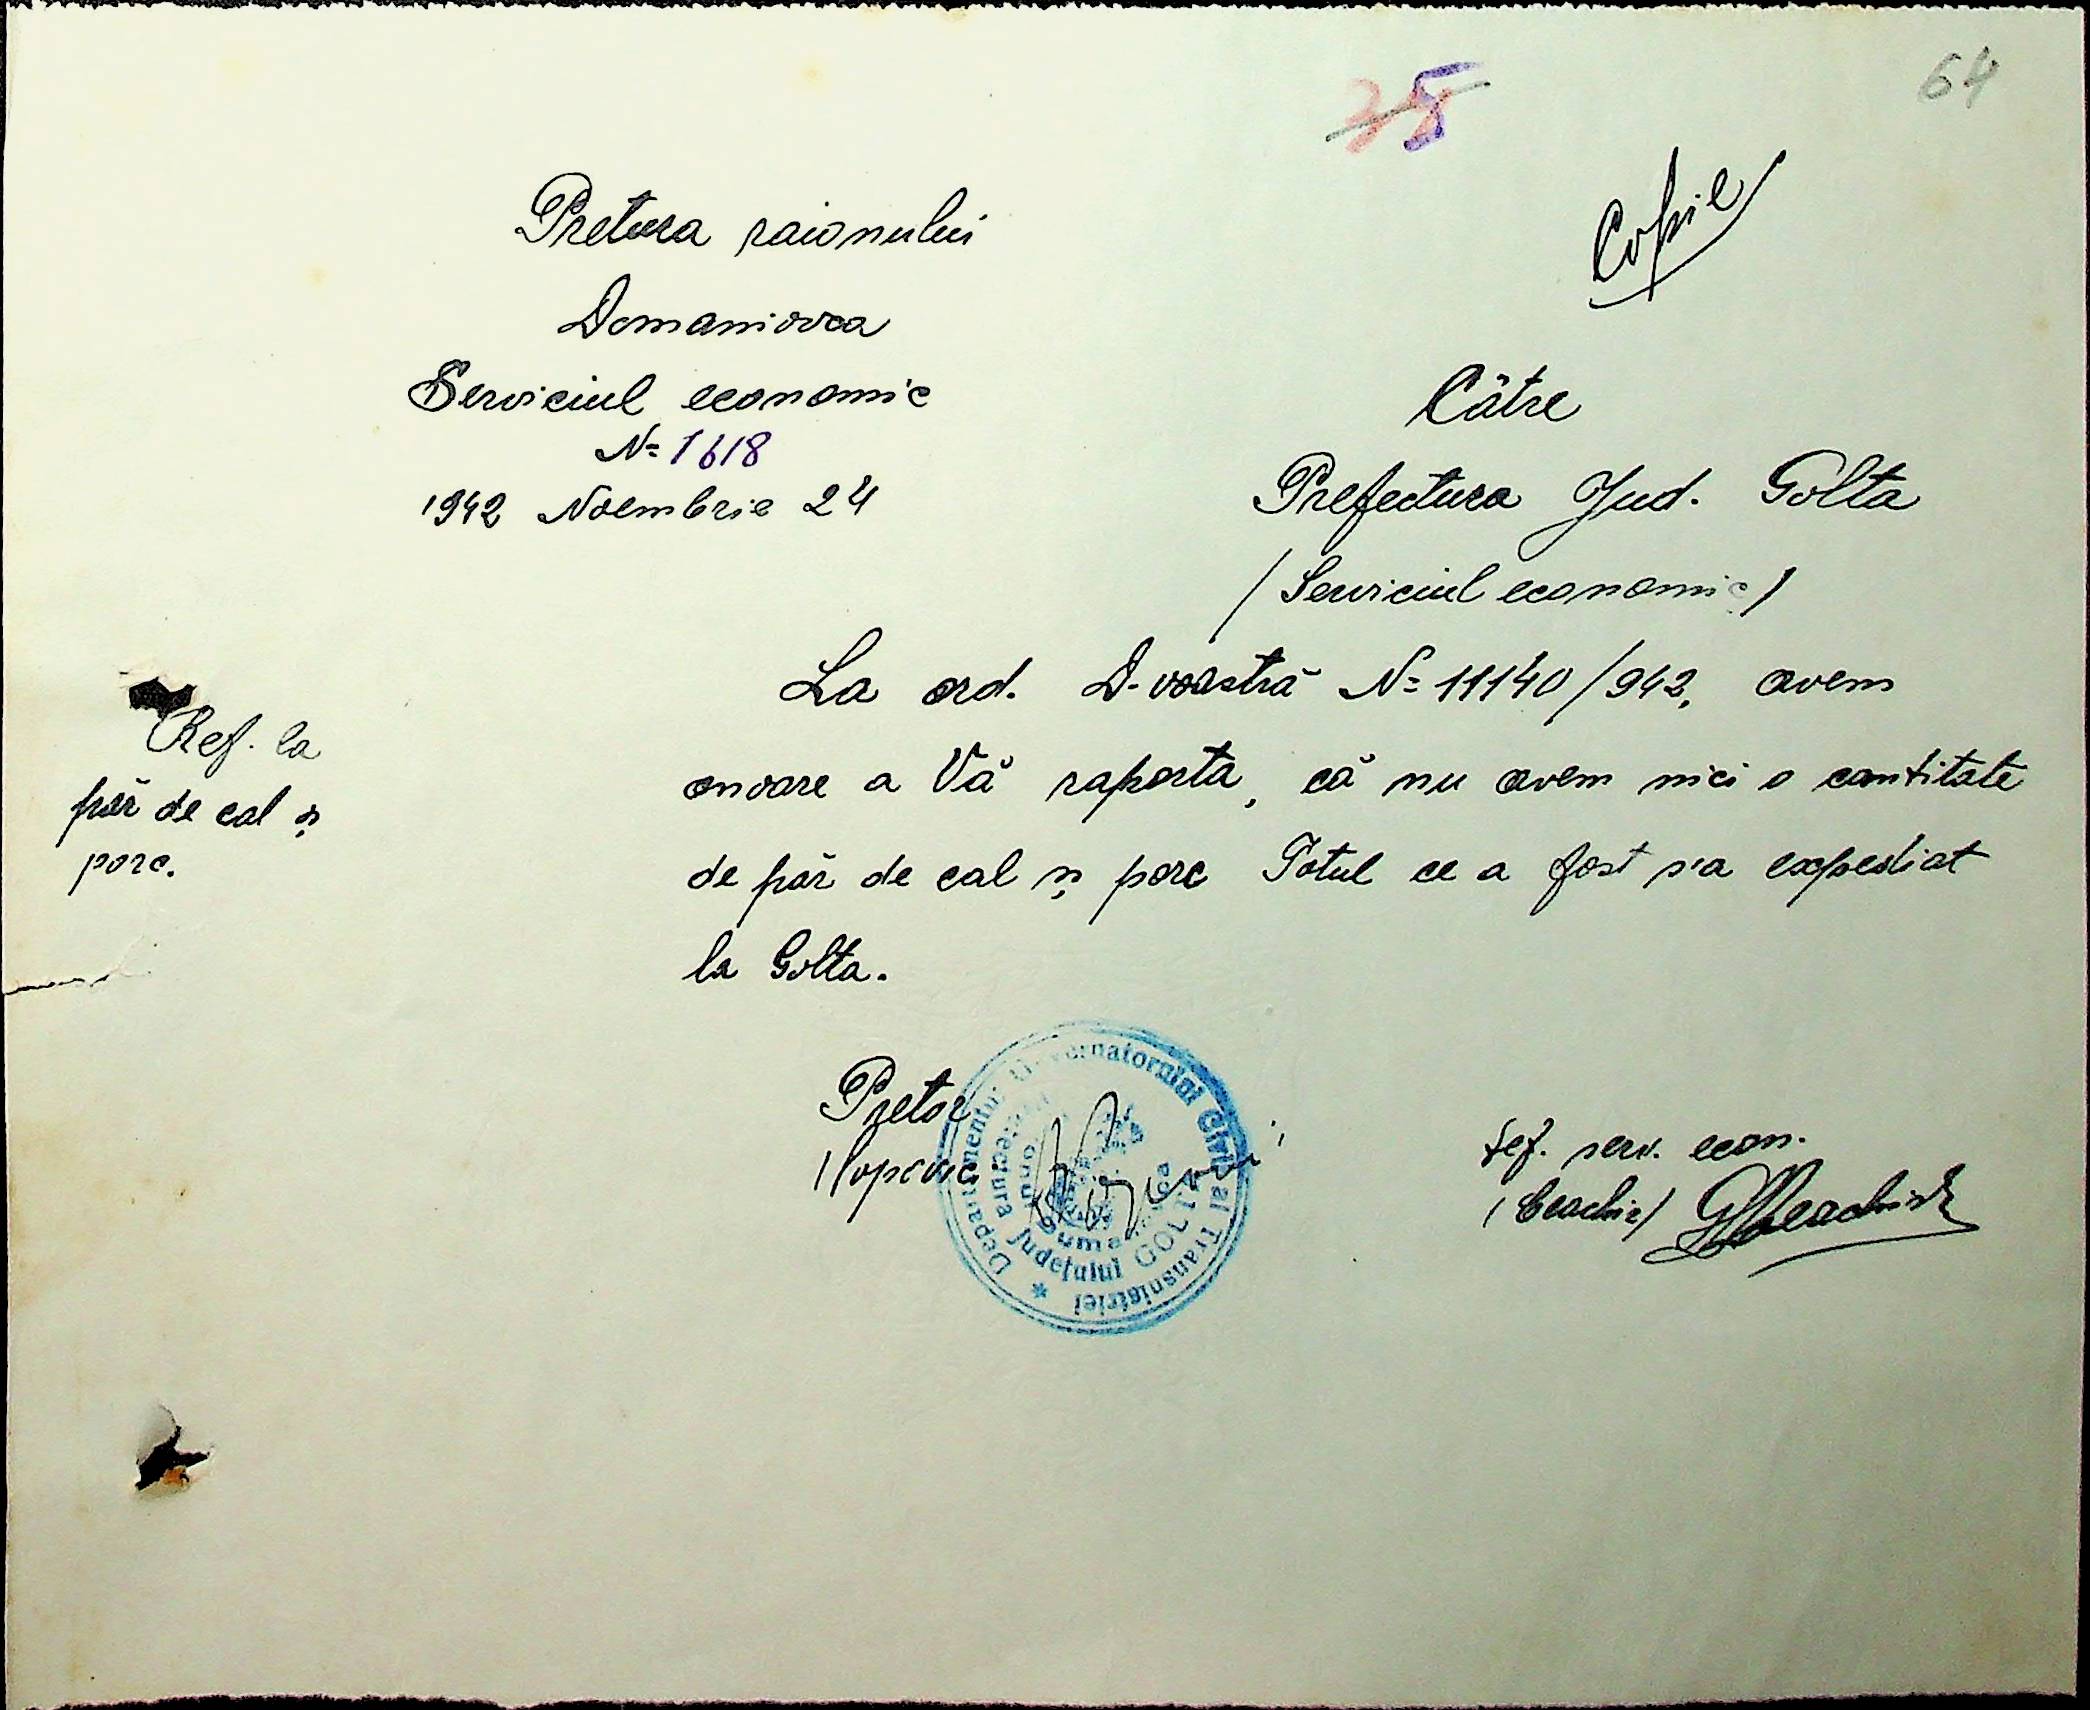 64
Copie
Pretura raionului
Domaniovca
Serviciul economic
N= 1618
1942 Noembrie 24
Către
Prefectura Jud. Golta
/Serviciul economic/
Ref. la
păr de cal și
porc.
La ord. D-voastră N= 11140/942, avem
onoare a Vă raporta, că nu avem nici o cantitate
de păr de cal și porc Totul ce a fost s'a expediat
la Golta.
Pretor
Șef. serv. econ.
Departamentul Guvernatorului Civil al Transnistriei
Prefectura Județului GOLTA